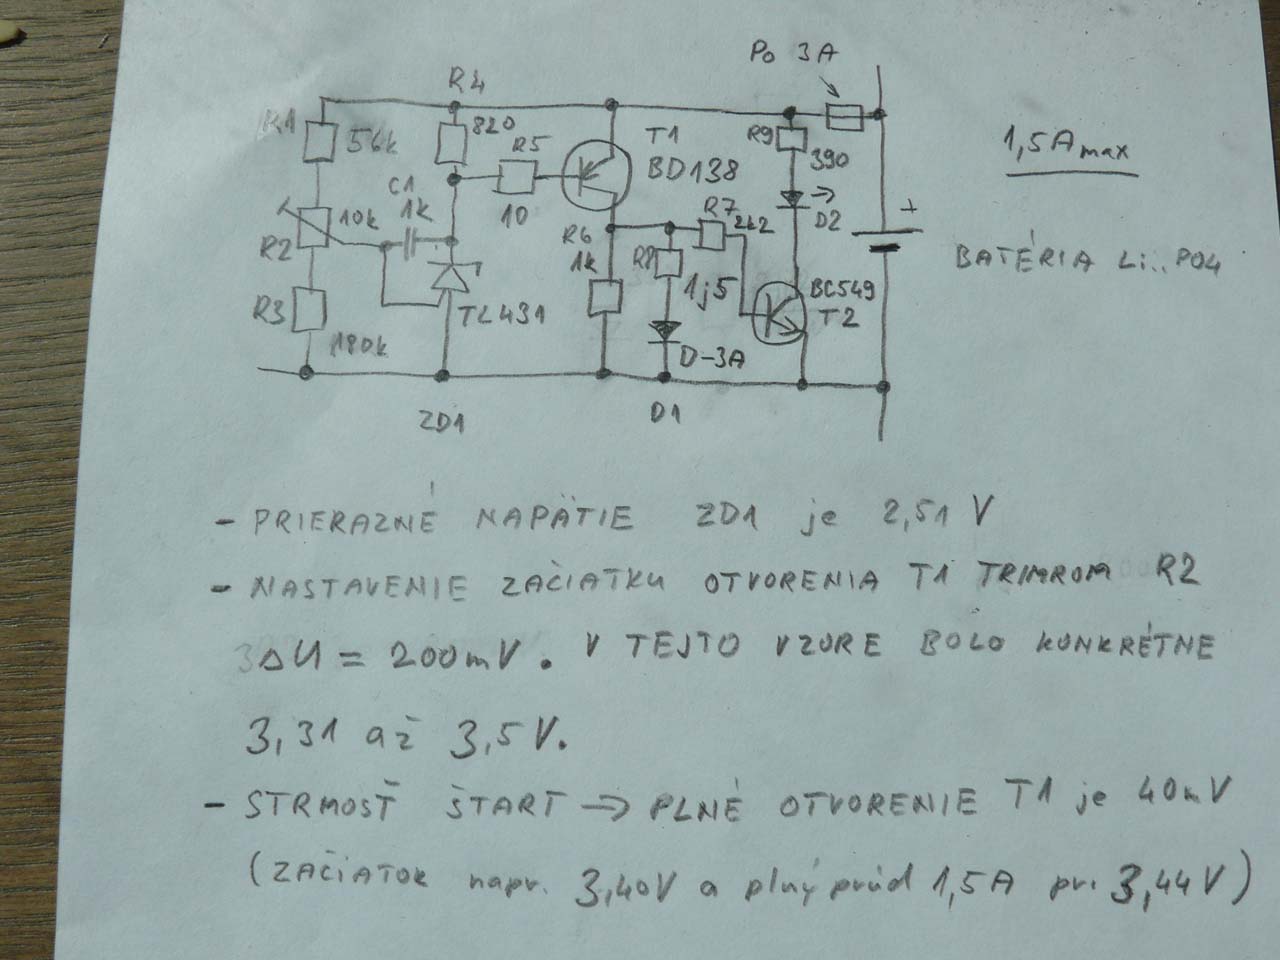 Po 3A
R4
R1
56k
820
R5
T1
BD138
R9
390
1,5Amax
C1
1k
10k
10
R2
R6
1k
R7
2k2
D2
+
R8
1j5
BC549
T2
BATÉRIA Li..PO4
R3
180k
TL431
D-3A
ZD1
D1
- PRIERAZNÉ NAPÄTIE ZD1 je 2,51 V
- NASTAVENIE ZAČIATKU OTVORENIA T1 TRIMROM R2
ΔU = 200mV. V TEJTO VZORE BOLO KONKRÉTNE
3,31 až 3,5V.
- STRMOSŤ ŠTART → PLNÉ OTVORENIE T1 je 40mV
(ZAČIATOK napr. 3,40V a plný prúd 1,5A pri 3,44V)